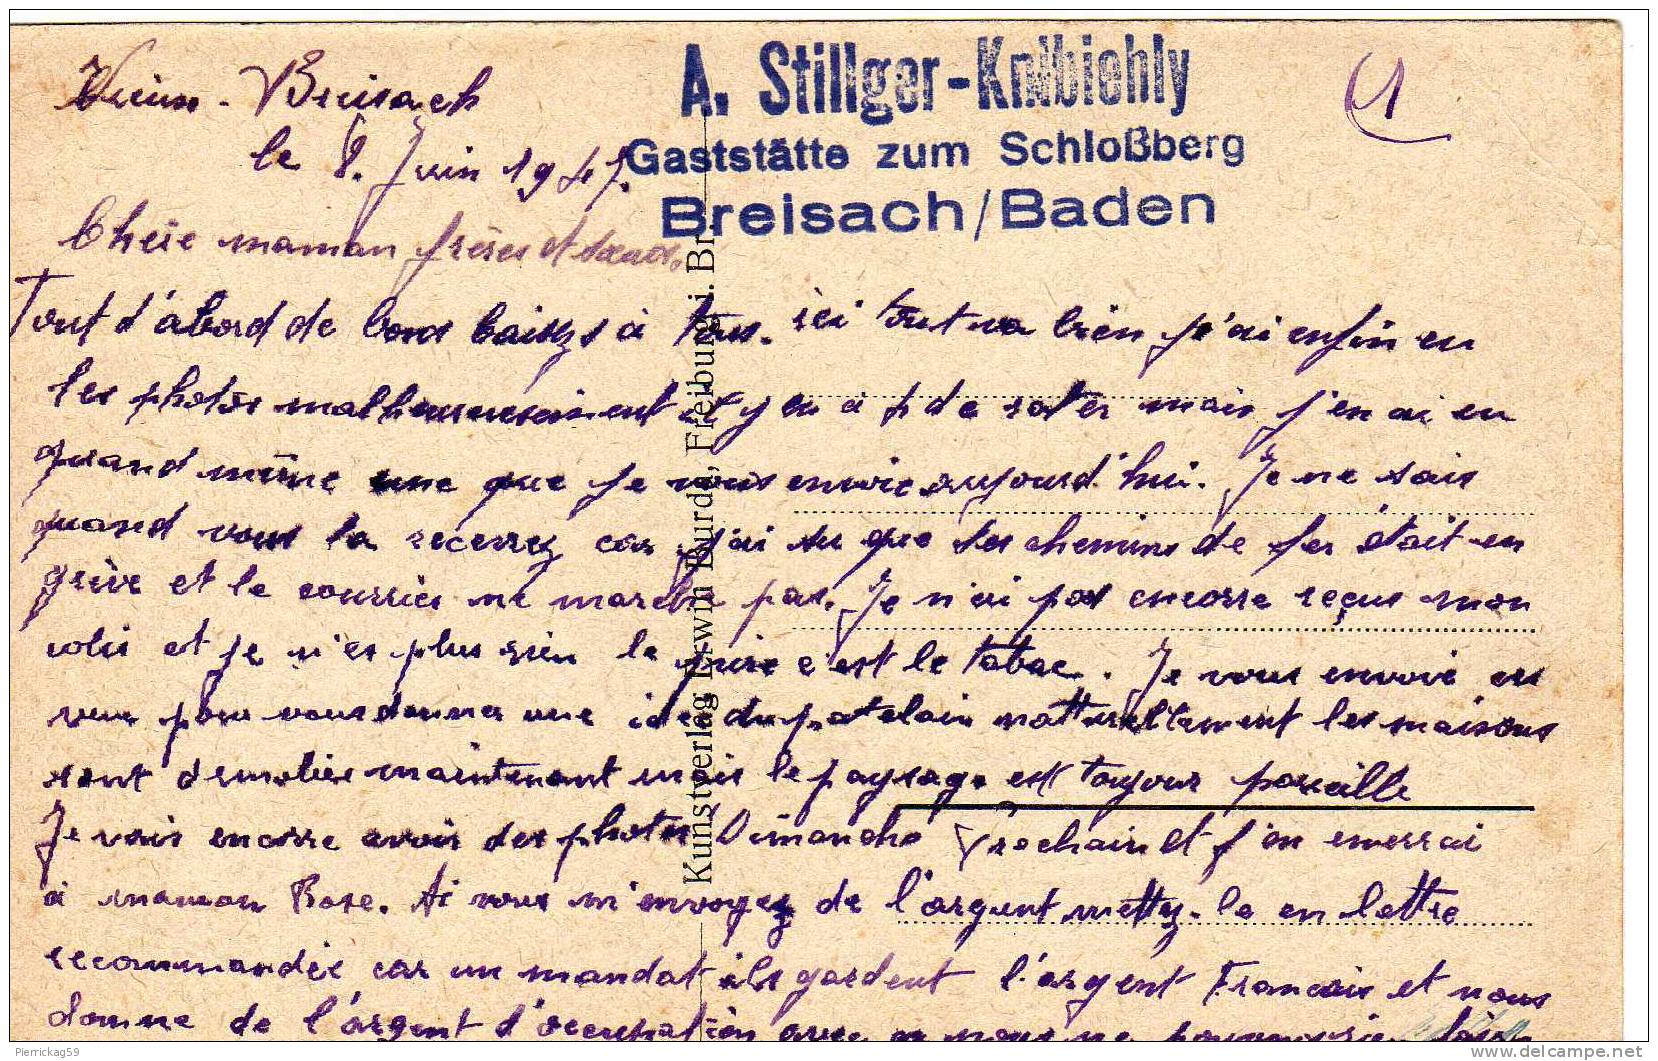 A. Stillger-Knibiehly
Gaststätte zum Schloßberg
Breisach/Baden
Vieux-Brisach
le 8. Juin 1947.
Chère maman frères et sœurs.
Tout d'abord de bons baisers à tous. ici tout va bien j'ai enfin eu
les photos malheureusement il y en a de ratés mais j'en ai eu
quand même une que je vous envoie aujourd'hui. Je ne sais
quand vous la recevrez car j'ai su que les chemins de fer était en
grève et le courrier ne marche pas. Je n'ai pas encorre reçus mon
colis et je n'ai plus rien le pire c'est le tabac. Je vous envoie ces
vues pour vous donner une idée du patelain natturellement les maisons
sont démolies maintenant mais le paysage est toujour pareille
Je vais encorre avoir des photos Dimanche prochain et j'en enverrai
à maman Rose. Si vous m'envoyez de l'argent mettez-le en lettre
recommandée car un mandat ils gardent l'argent Francais et nous
donne de l'argent d'occupation avec on nous ne
Kunstverlag Erwin Burda, Freiburg i. Br.
Pierrickag59
delcampe.net